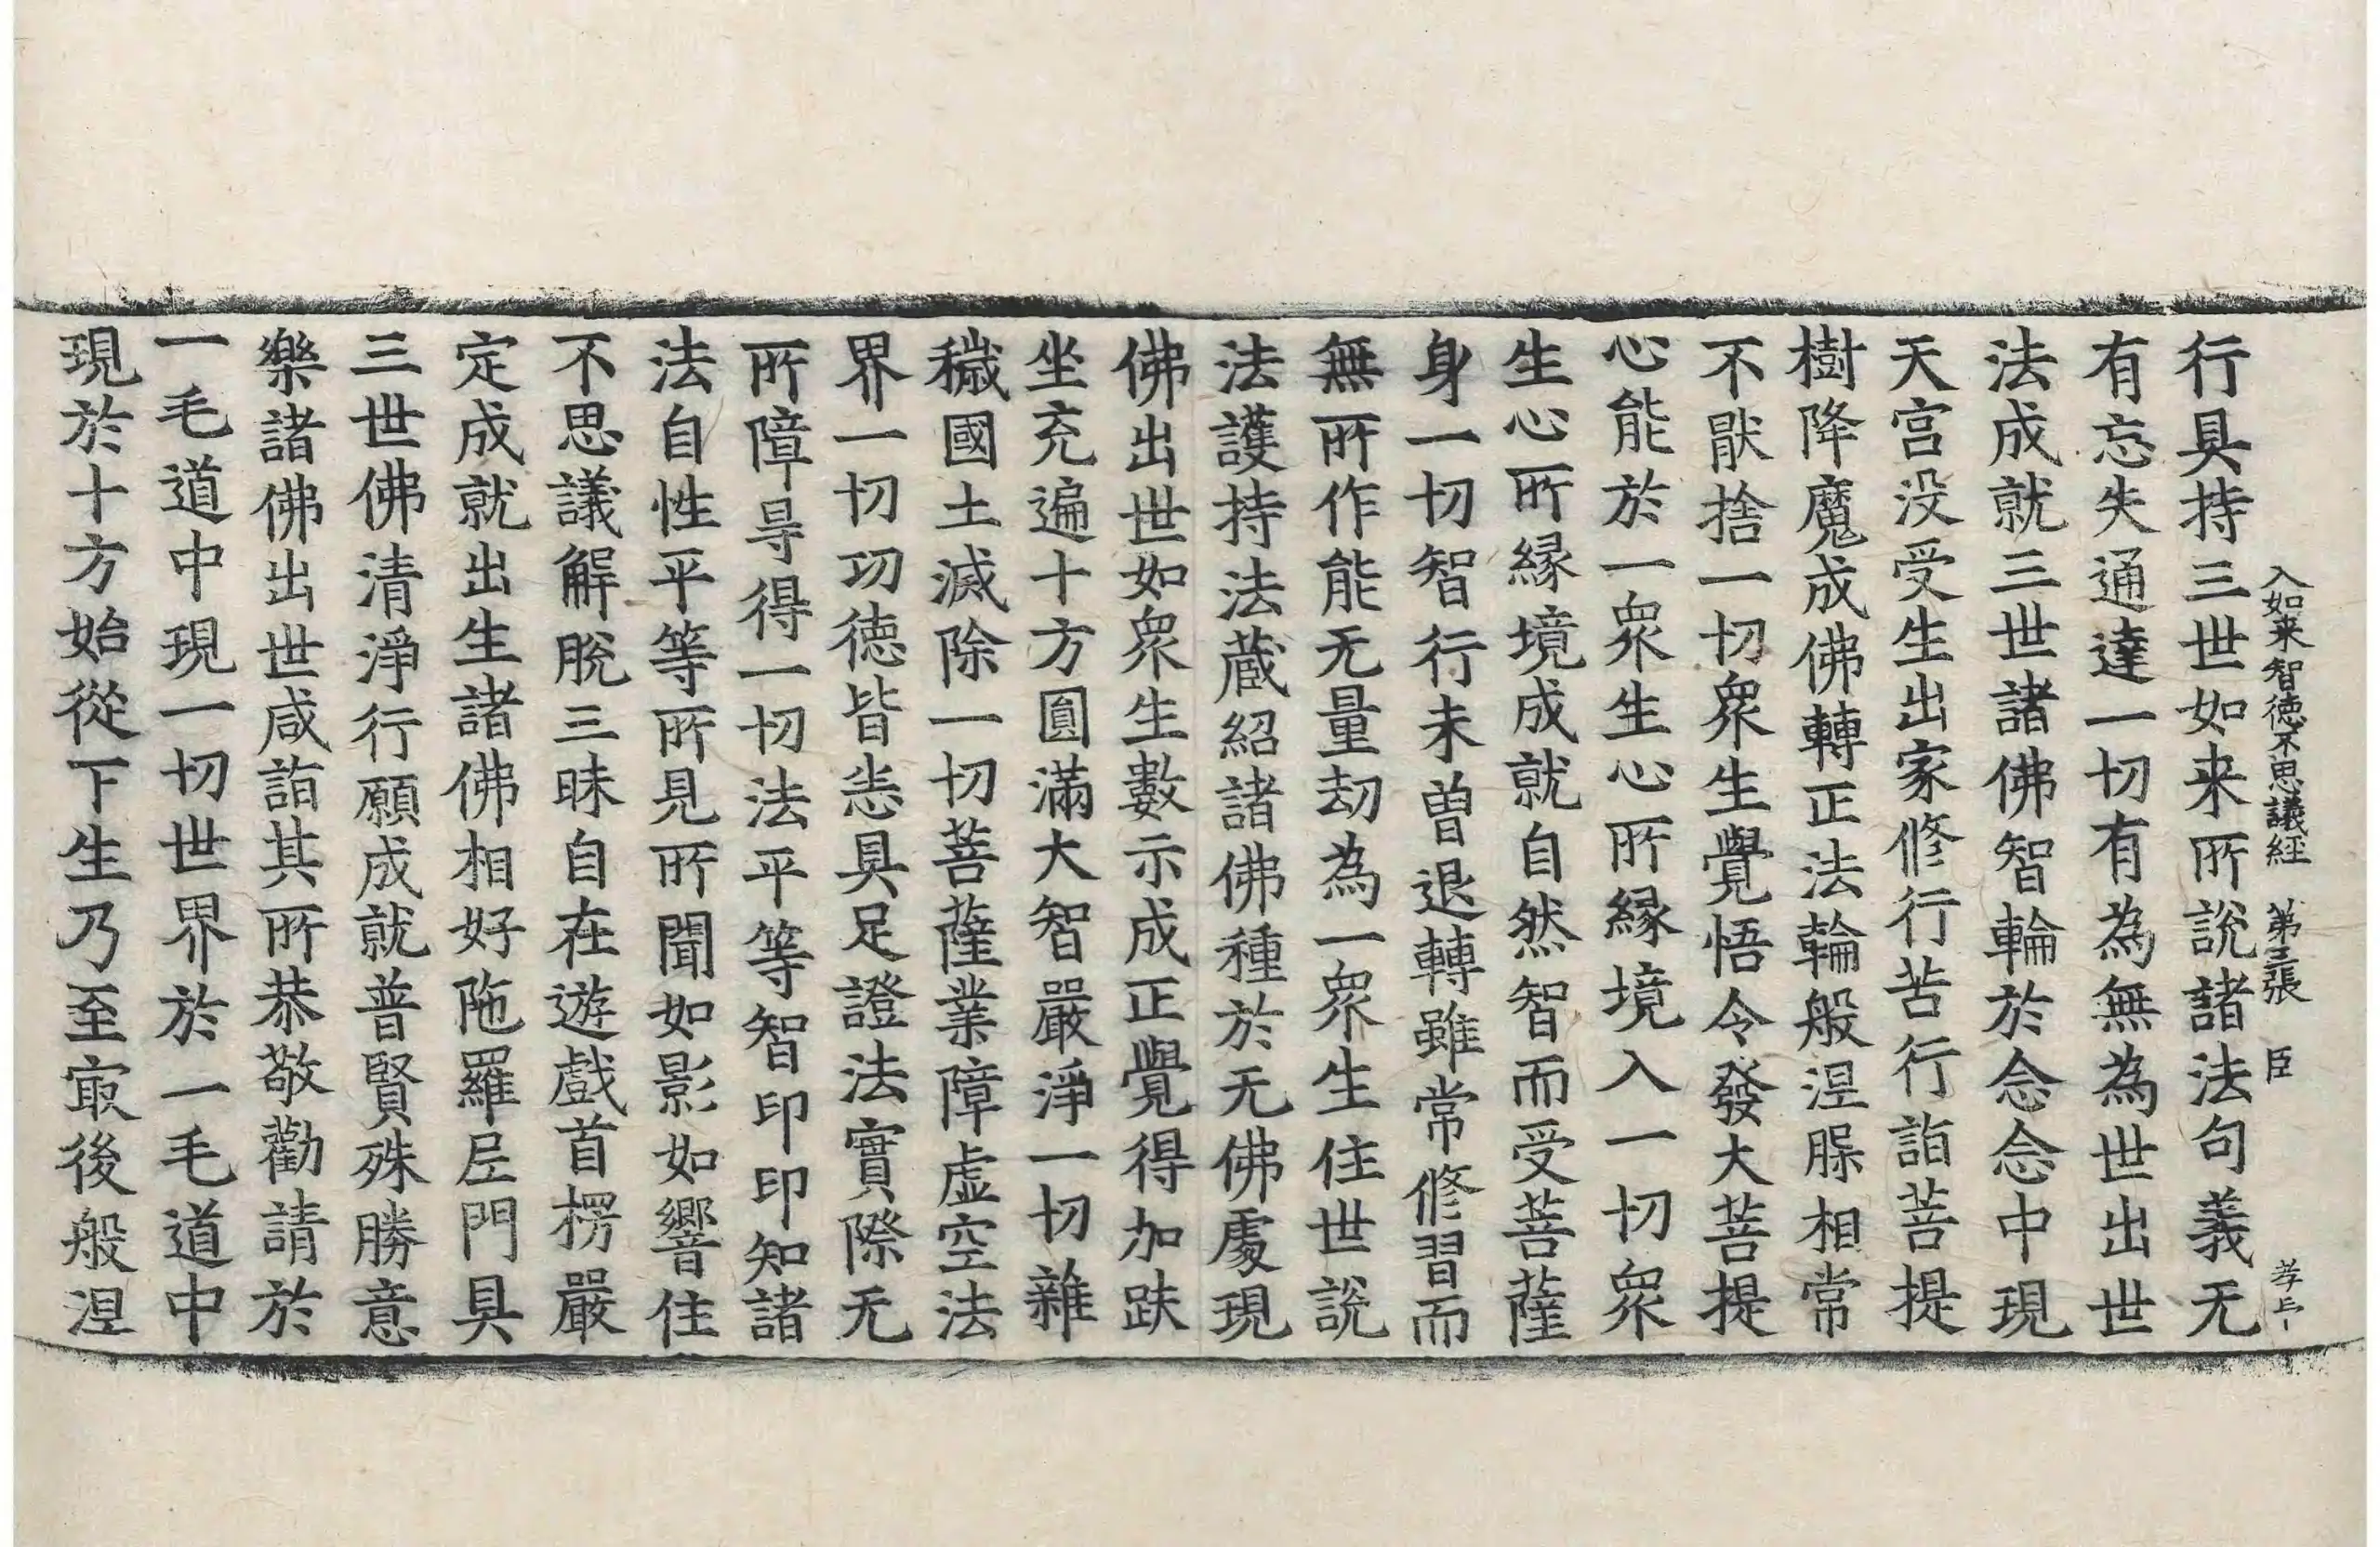 入如来智德不思議経 第三張 臣 孝
行具持三世如来所說諸法句義无
有忘失通達一切有為無為世出世
法成就三世諸佛智輪於念念中現
天宮没受生出家修行苦行詣菩提
樹降魔成佛轉正法輪般涅槃相常
不猒捨一切衆生覺悟令發大菩提
心能於一衆生心所緣境入一切衆
生心所緣境成就自然智而受菩薩
身一切智行未曽退轉雖常修習而
無所作能无量劫為一衆生住世說
法護持法蔵紹諸佛種於无佛處現
佛出世如衆生數示成正覺得加趺
坐充遍十方圓滿大智嚴淨一切雜
穢國土滅除一切菩薩業障虛空法
界一切功德皆悉具足證法實際无
所障㝵得一切法平等智印印知諸
法自性平等所見所聞如影如響住
不思議解脫三昧自在遊戲首楞嚴
定成就出生諸佛相好陁羅尼門具
三世佛清淨行願成就普賢殊勝意
樂諸佛出世咸詣其所恭敬勸請於
一毛道中現一切世界於一毛道中
現於十方始從下生乃至㝡後般涅